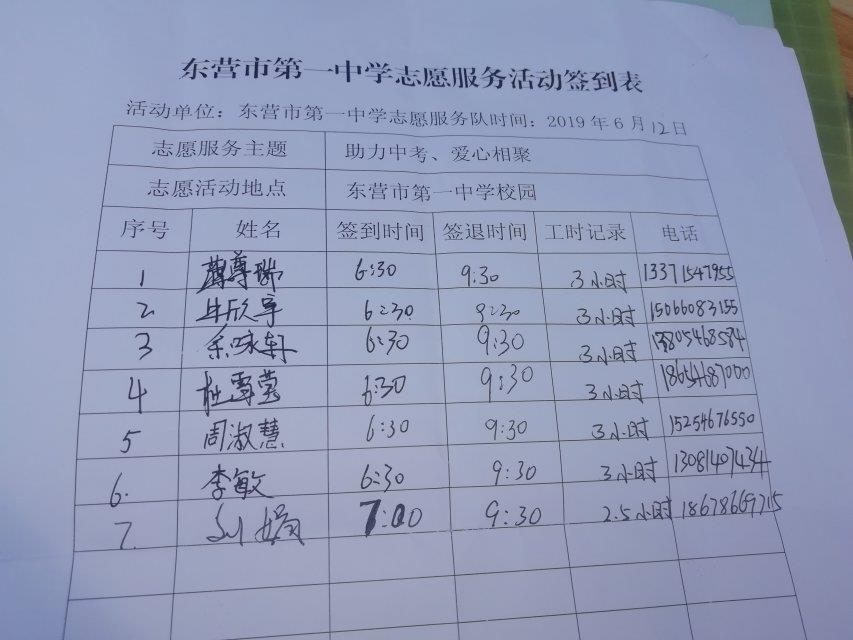 东营市第一中学志愿服务活动签到表
活动单位：东营市第一中学志愿服务队时间：2019年6月12日
志愿服务主题 助力中考、爱心相聚
志愿活动地点 东营市第一中学校园
序号 姓名 签到时间 签退时间 工时记录 电话
1 尊瑞 6:30 9:30 3小时 13371547955
2 牛欣宇 6:30 9:30 3小时 15066083155
3 余咏轩 6:30 9:30 3小时 13805468584
4 杜雪莹 6:30 9:30 3小时 18654687000
5 周淑慧 6:30 9:30 3小时 15254676550
6. 李敏 6:30 9:30 3小时 13081407434
7. 刘娟 7:00 9:30 2.5小时 18678669715